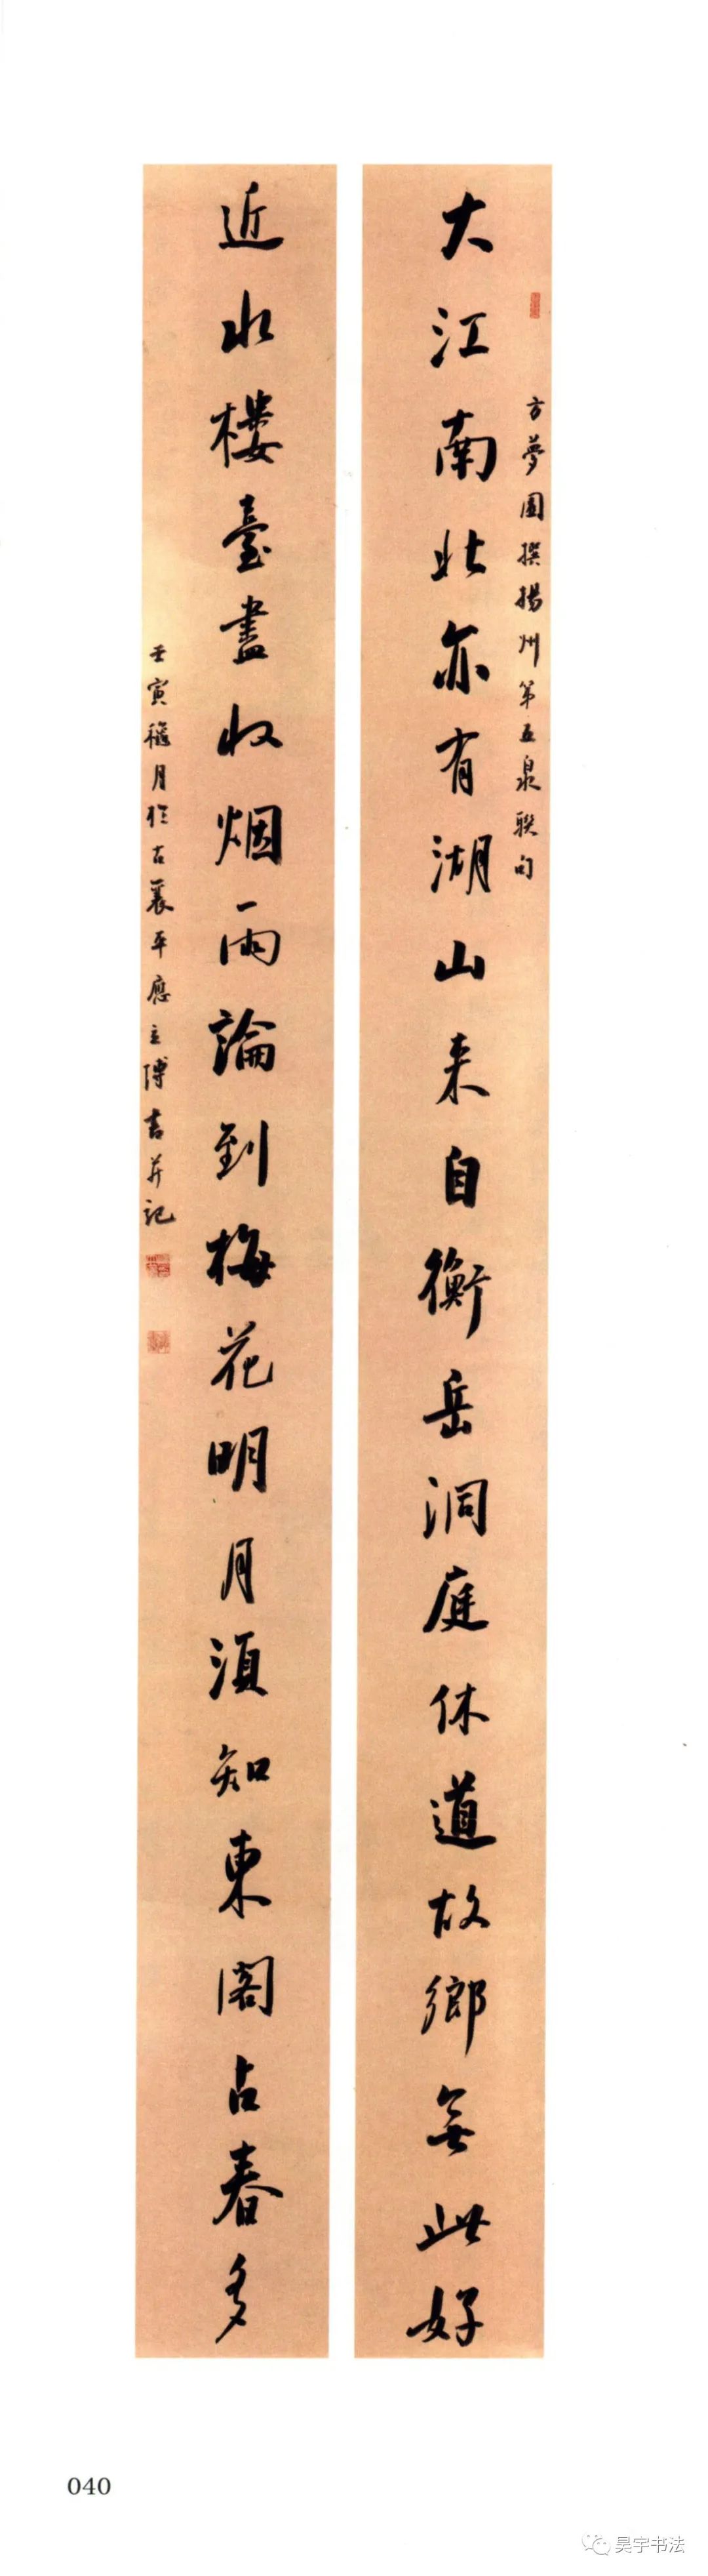 方夢園撰揚州第五泉聯句
大江南北亦有湖山来自衡岳洞庭休道故鄉無此好
近水樓臺盡收烟雨論到梅花明月須知東閣占春多
壬寅穐月於古襄平應立博書并記
040
昊宇书法